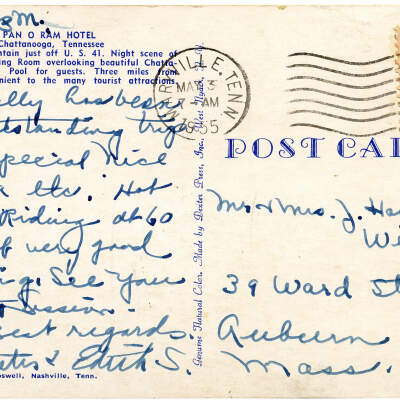 M.
PAN O RAM HOTEL
Chattanooga, Tennessee
tain just off U. S. 41. Night scene of
ing Room overlooking beautiful Chatta-
Pool for guests. Three miles from
enient to the many tourist attractions.
lly has been
tstanding trip
pecial nice
etc. Hot
Riding at 60
of very good
ng. See you
at session.
est regards.
& Edith S.
oswell, Nashville, Tenn.
Genuine Natural Color. Made by Dexter Press, Inc., West Nyack, N. Y.
MARYVILLE, TENN.
MAY 3
7 AM
1955
POST CA
Mr & Mrs. J. Ha
Wi
39 Ward St
Auburn
Mass.